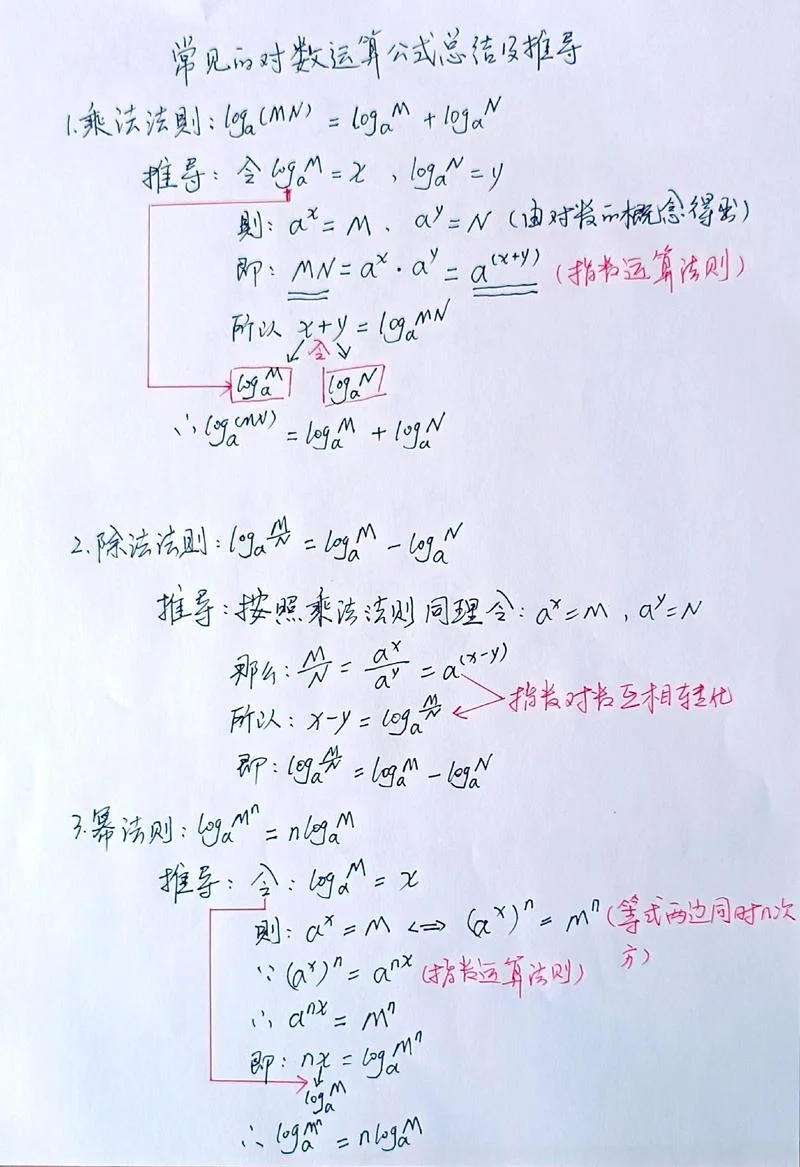 常见的对数运算公式总结及推导
1.乘法法则:logₐ(MN) = logₐM + logₐN
推导:令 logₐM = x 、logₐN = y
则:aˣ = M 、 aʸ = N (由对数的概念得出)
即:MN = aˣ · aʸ = a⁽ˣ⁺ʸ⁾ (指数运算法则)
所以 x+y = logₐMN
令
logₐM logₐN
∴ logₐ(MN) = logₐM + logₐN
2.除法法则:logₐM/N = logₐM - logₐN
推导:按照乘法法则同理令:aˣ = M 、aʸ = N
那么:M/N = aˣ/aʸ = a⁽ˣ⁻ʸ⁾
所以:x-y = logₐM/N 指数对数互相转化
即:logₐM/N = logₐM - logₐN
3.幂法则:logₐMⁿ = nlogₐM
推导:令:logₐM = x
则:aˣ = M ⇔ (aˣ)ⁿ = Mⁿ (等式两边同时n次
方)
∵ (aˣ)ⁿ = aⁿˣ (指数运算法则)
∴ aⁿˣ = Mⁿ
即:nx = logₐMⁿ
logₐM
∴ logₐMⁿ = nlogₐM